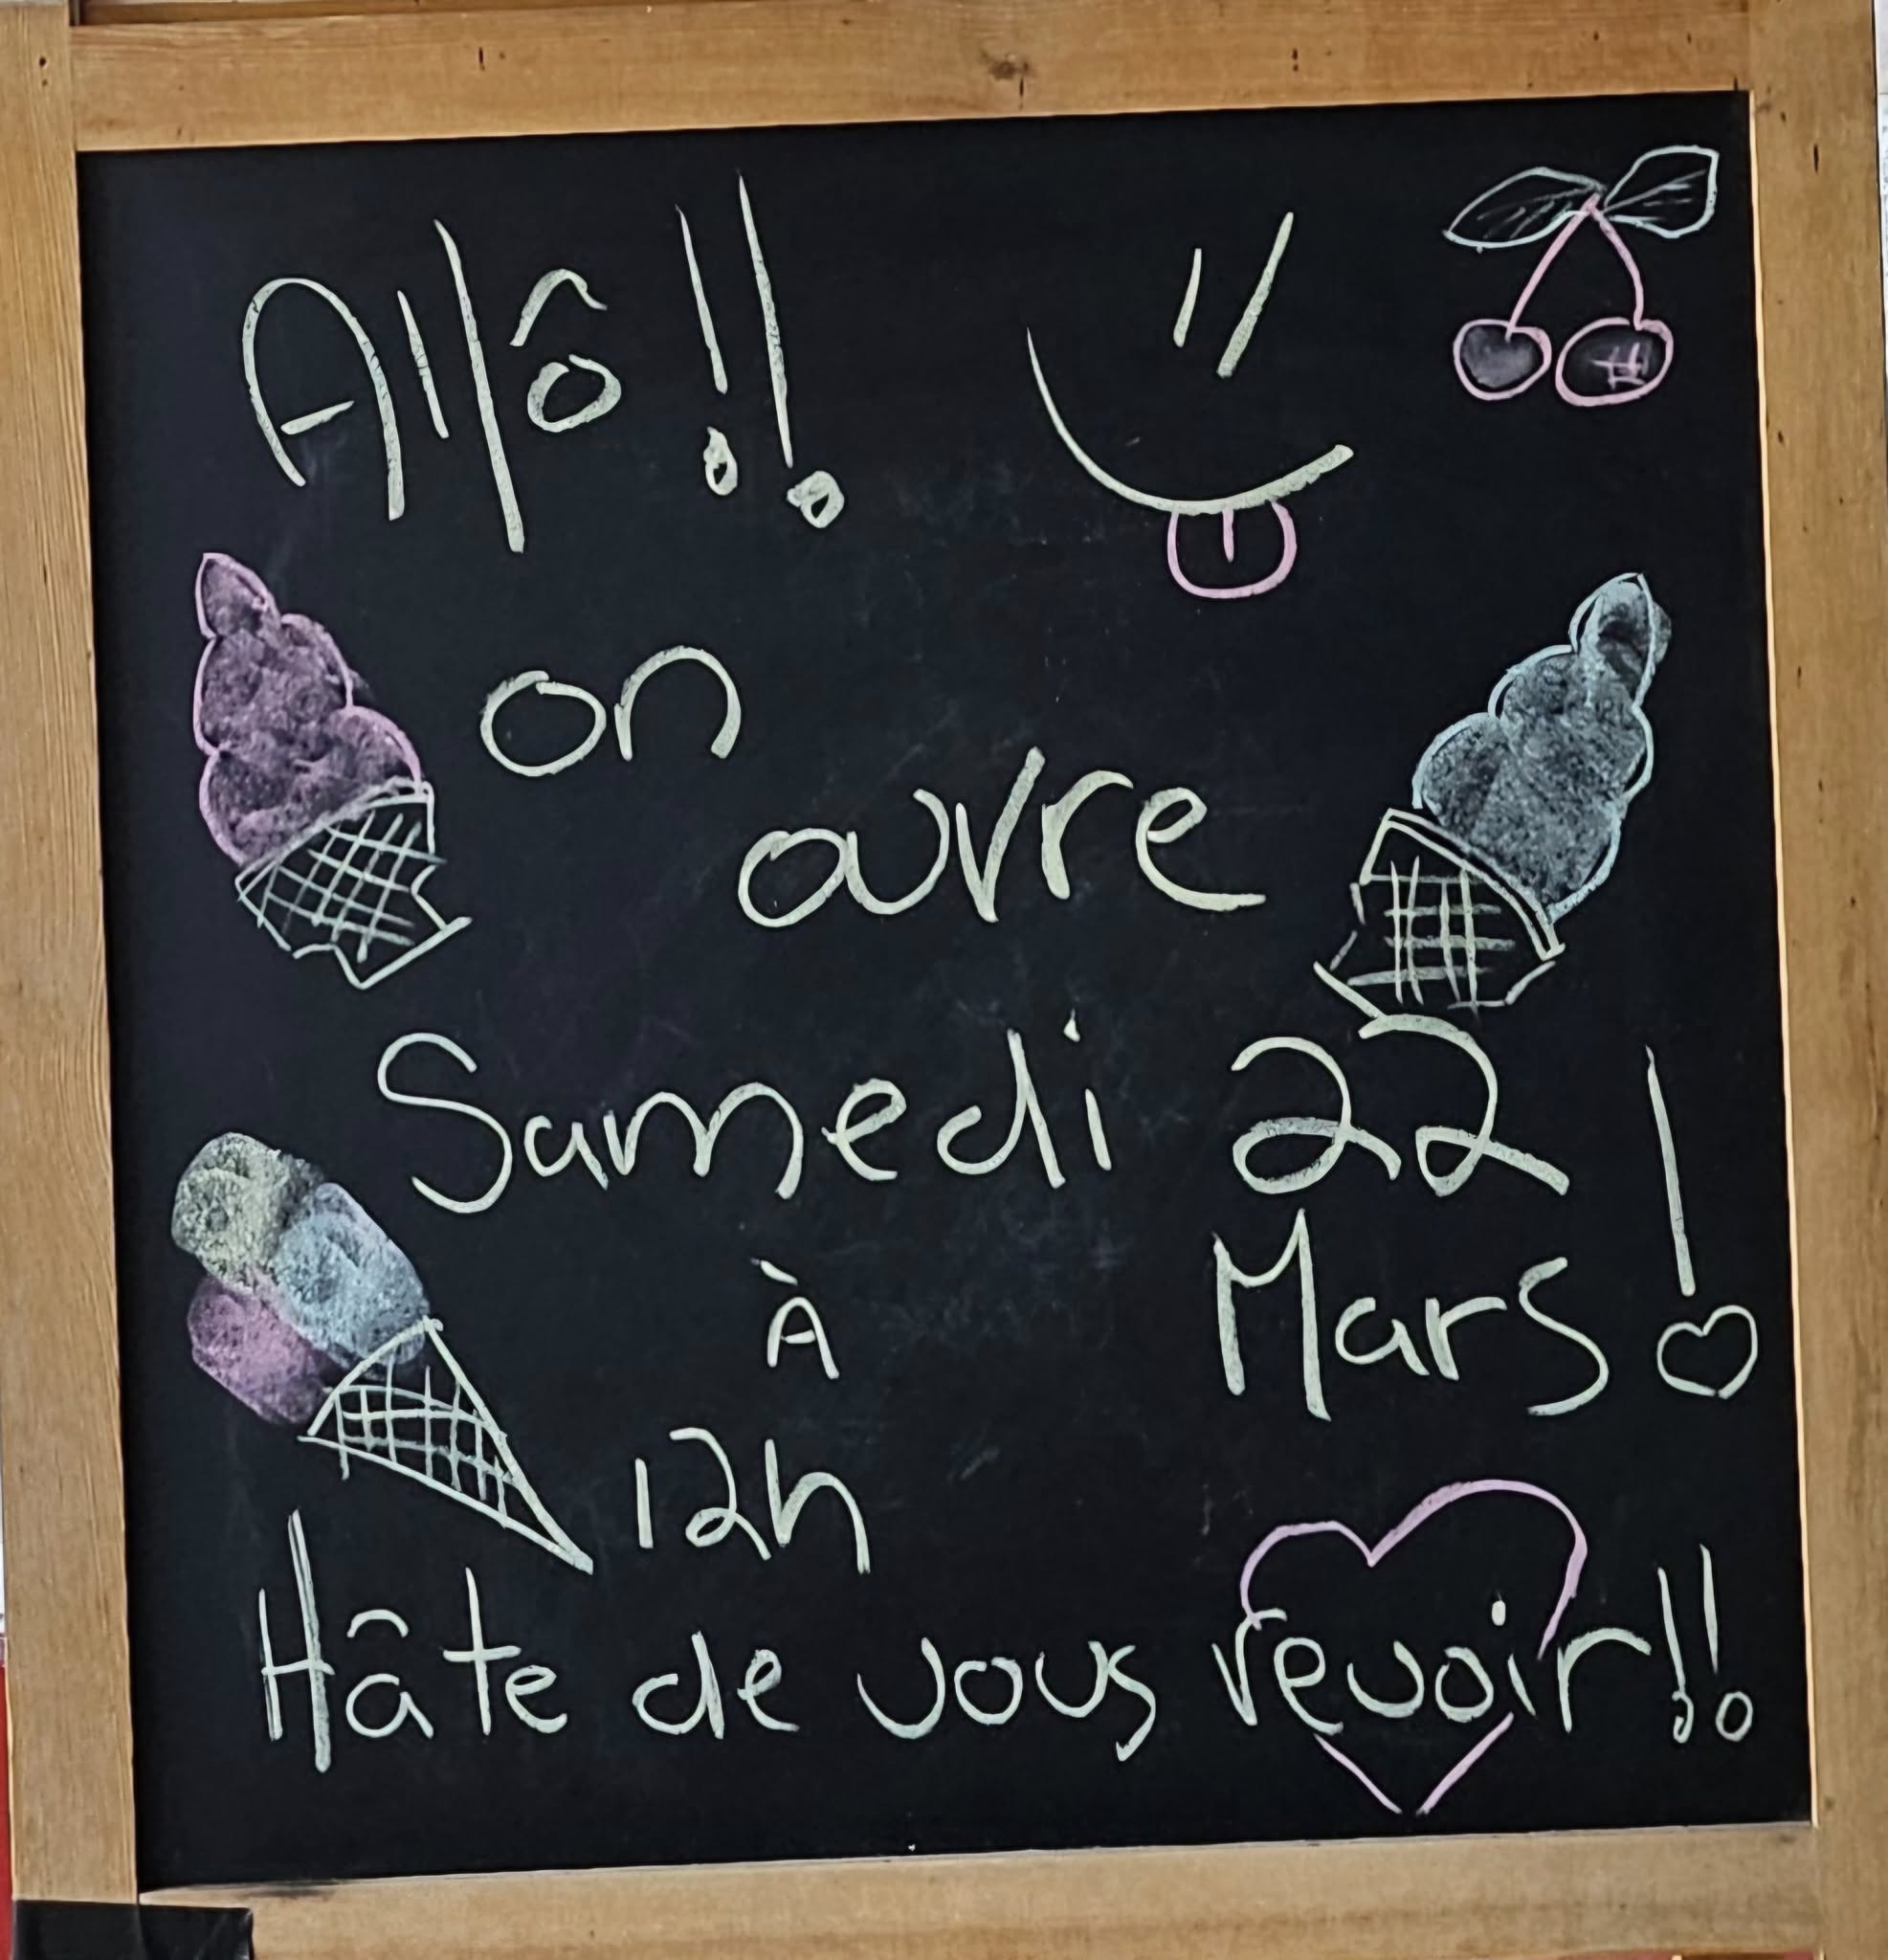 Allô!!
on
ouvre
Samedi 22
Mars!
À
12h
Hâte de vous revoir!!